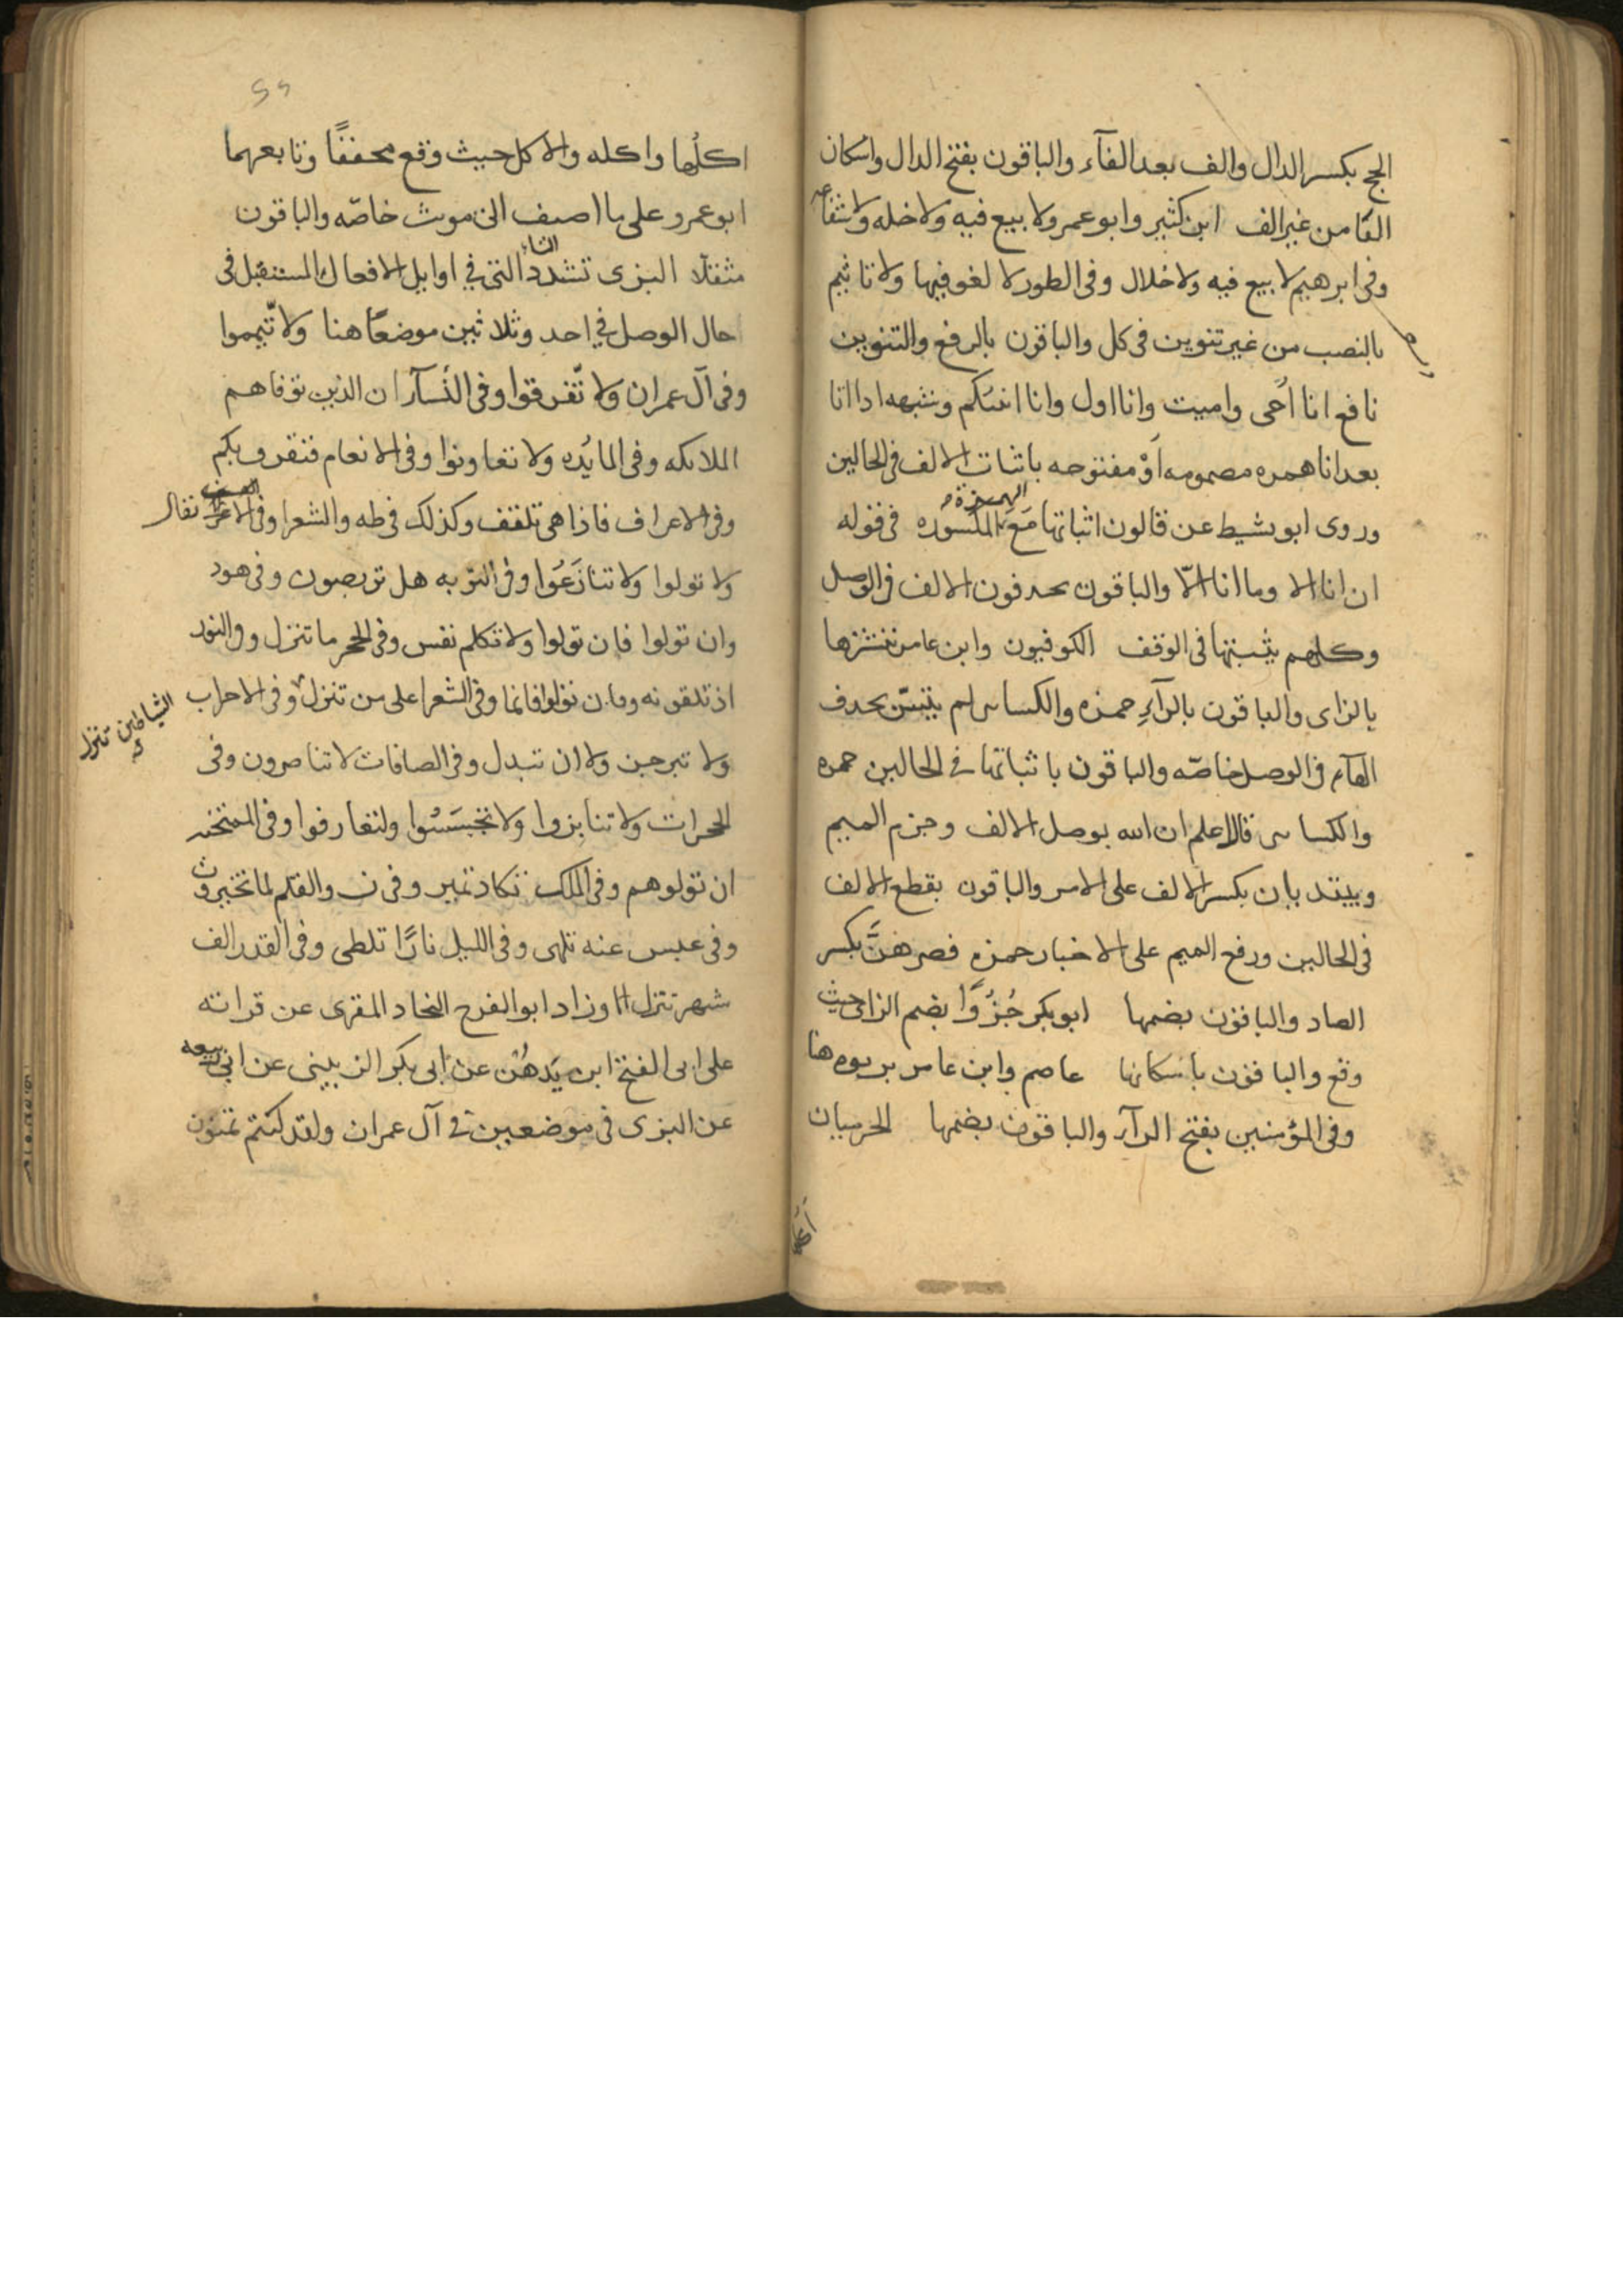 الحج بكسر الدال والف بعد الفآء والباقون بفتح الدال واسكان
الفا من غير الف ابن كثير وابو عمرو لا بيع فيه ولا خله ولا شفاعه
وفى ابرهيم لا بيع فيه ولا خلال وفى الطور لا لغو فيها ولا تاثيم
بالنصب من غير تنوين فى كل والباقون بالرفع والتنوين
نافع انا احى واميت وانا اول وانا انبئكم وشبهه اذا اتا
بعد انا همزه مضمومه اَوْ مفتوحه باثبات الالف فى الحالين
وروى ابو نشيط عن قالون اثباتها مَعَ الهمزة المكسوره فى قوله
ان انا الا وما انا الّا والباقون يحذفون الالف فى الوصل
وكلهم يثبتها فى الوقف الكوفيون وابن عامر ننشزها
بالزاى والباقون بالرآءِ حمزه والكساى لم يتسنّ بحذف
الهآء فى الوصل خاصّه والباقون باثباتها فى الحالين حمزه
والكساى قال اعلم ان الله بوصل الالف وجزم الميم
ويبتدبان بكسر الالف على الامر والباقون بقطع الالف
فى الحالين ورفع الميم على الاخبار حمزه فصرهُنَّ بكسر
الصاد والباقون بضمها ابو بكر جُزُوًا بضم الزاى حيث
وقع والباقون باسكانها عاصم وابن عامر بربوه هنا
وفى المؤمنين بفتح الرآء والباقون بضمها الحرميان
اكلُها واكله والاكل حيث وقع مخففًا وتابعهما
ابو عمرو على ما اضيف الى مونث خاصّه والباقون
مثقلا البزى تشدد التاء التى فى اوايل الافعال المستقبل فى
حال الوصل فى احد وثلاثين موضعًا هنا ولا تّيمموا
وفى آل عمران ولا تّفرقوا وفى النسآء ان الذين توفاهم
الملائكه وفى المايُده ولا تعاونوا وفى الانعام فتفرق بكم
وفى الاعراف فاذا هى تلقف وكذلك فى طه والشعرا وفى
ولا تولوا ولا تنازَعُوا وفى التوبه هل تربصون وفى هود
وان تولوا فان تولوا ولا تكلم نفس وفى الحجر ما تنزل وفى النور
اذ تلقونه وفان تولوا فانما وفى الشعرا على من تنزل وفى الاحزاب
الشياطين تنزل
ولا تبرجن ولا ان تبدل وفى الصافات لا تناصرون وفى
الحجرات ولا تنابزوا ولا تجسَسُوا ولتعارفوا وفى الممتحنه
ان تولوهم وفى الملك تكاد تميز وفى ن والقلم لما تخيرون
وفى عبس عنه تلهى وفى الليل نارًا تلظى وفى القدر الف
شهر تنزل وزاد ابو الفرج النجاد المقرى عن قراته
على ابى الفتح ابن يَدهُن عن ابى بكر الزبينى عن ابى ربيعه
عن البزى فى موضعين فى آل عمران ولقد كنتم تمنون